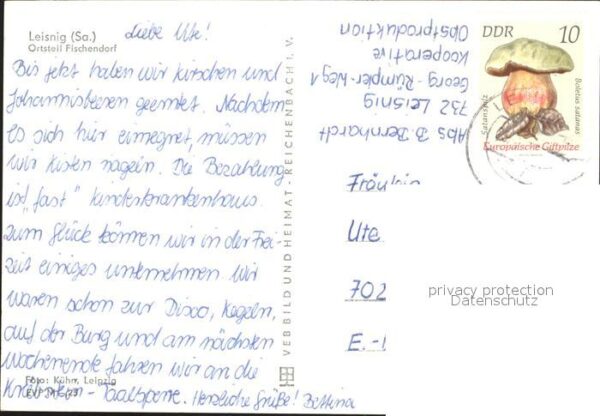 Leisnig (Sa.)
Ortsteil Fischendorf
Liebe Ute!
Bis jetzt haben wir Kirschen und
Johannisbeeren geerntet. Nachdem
es sich hier einregnet, müssen
wir Kisten nageln. Die Bezahlung
ist "fast" Kinderkrankenhaus
Zum Glück können wir in der Frei-
zeit einiges unternehmen wir
waren schon zur Disco, Kegeln,
auf der Burg und am nächsten
Wochenende fahren wir an die
Talsperre. Herzliche Grüße! Bettina
Foto: Kühn, Leipzig
VEB BILD UND HEIMAT · REICHENBACH I. V.
Abs B. Bernhardt
732 Leisnig
Georg-Rümpler-Weg 1
Kooperative
Obstproduktion
DDR 10
Satanspilz
Boletus satanas
Europäische Giftpilze
Fräulein
Ute
702
E.-
privacy protection
Datenschutz